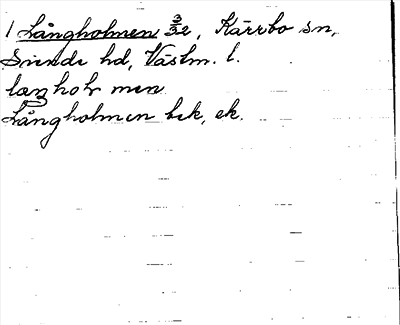 1 Långholmen 3/32, Kärrbo sn,
Siende hd, Västm. l.
langhol men
Långholmen bek, ek.